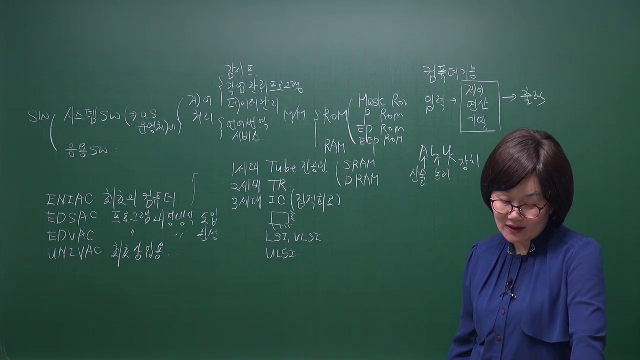 감시 프
작업관리프로그램
데이터관리
SW 시스템SW (⇒ O.S 운영체제) 제어
처리 언어번역
서비스
응용SW
M/M ROM Mask Rom
P Rom
EP Rom
EEP Rom
RAM SRAM
DRAM
컴퓨터기능
입력 → 제어
연산
기억 → 출력
ALU
산술 논리 장치
1세대 Tube 진공관
2세대 TR
3세대 IC (집적회로)
LSI, VLSI
ULSI
ENIAC 최초의 컴퓨터
EDSAC 프로그램 내장방식 도입
EDVAC " " 완성
UNIVAC 최초 상업용.